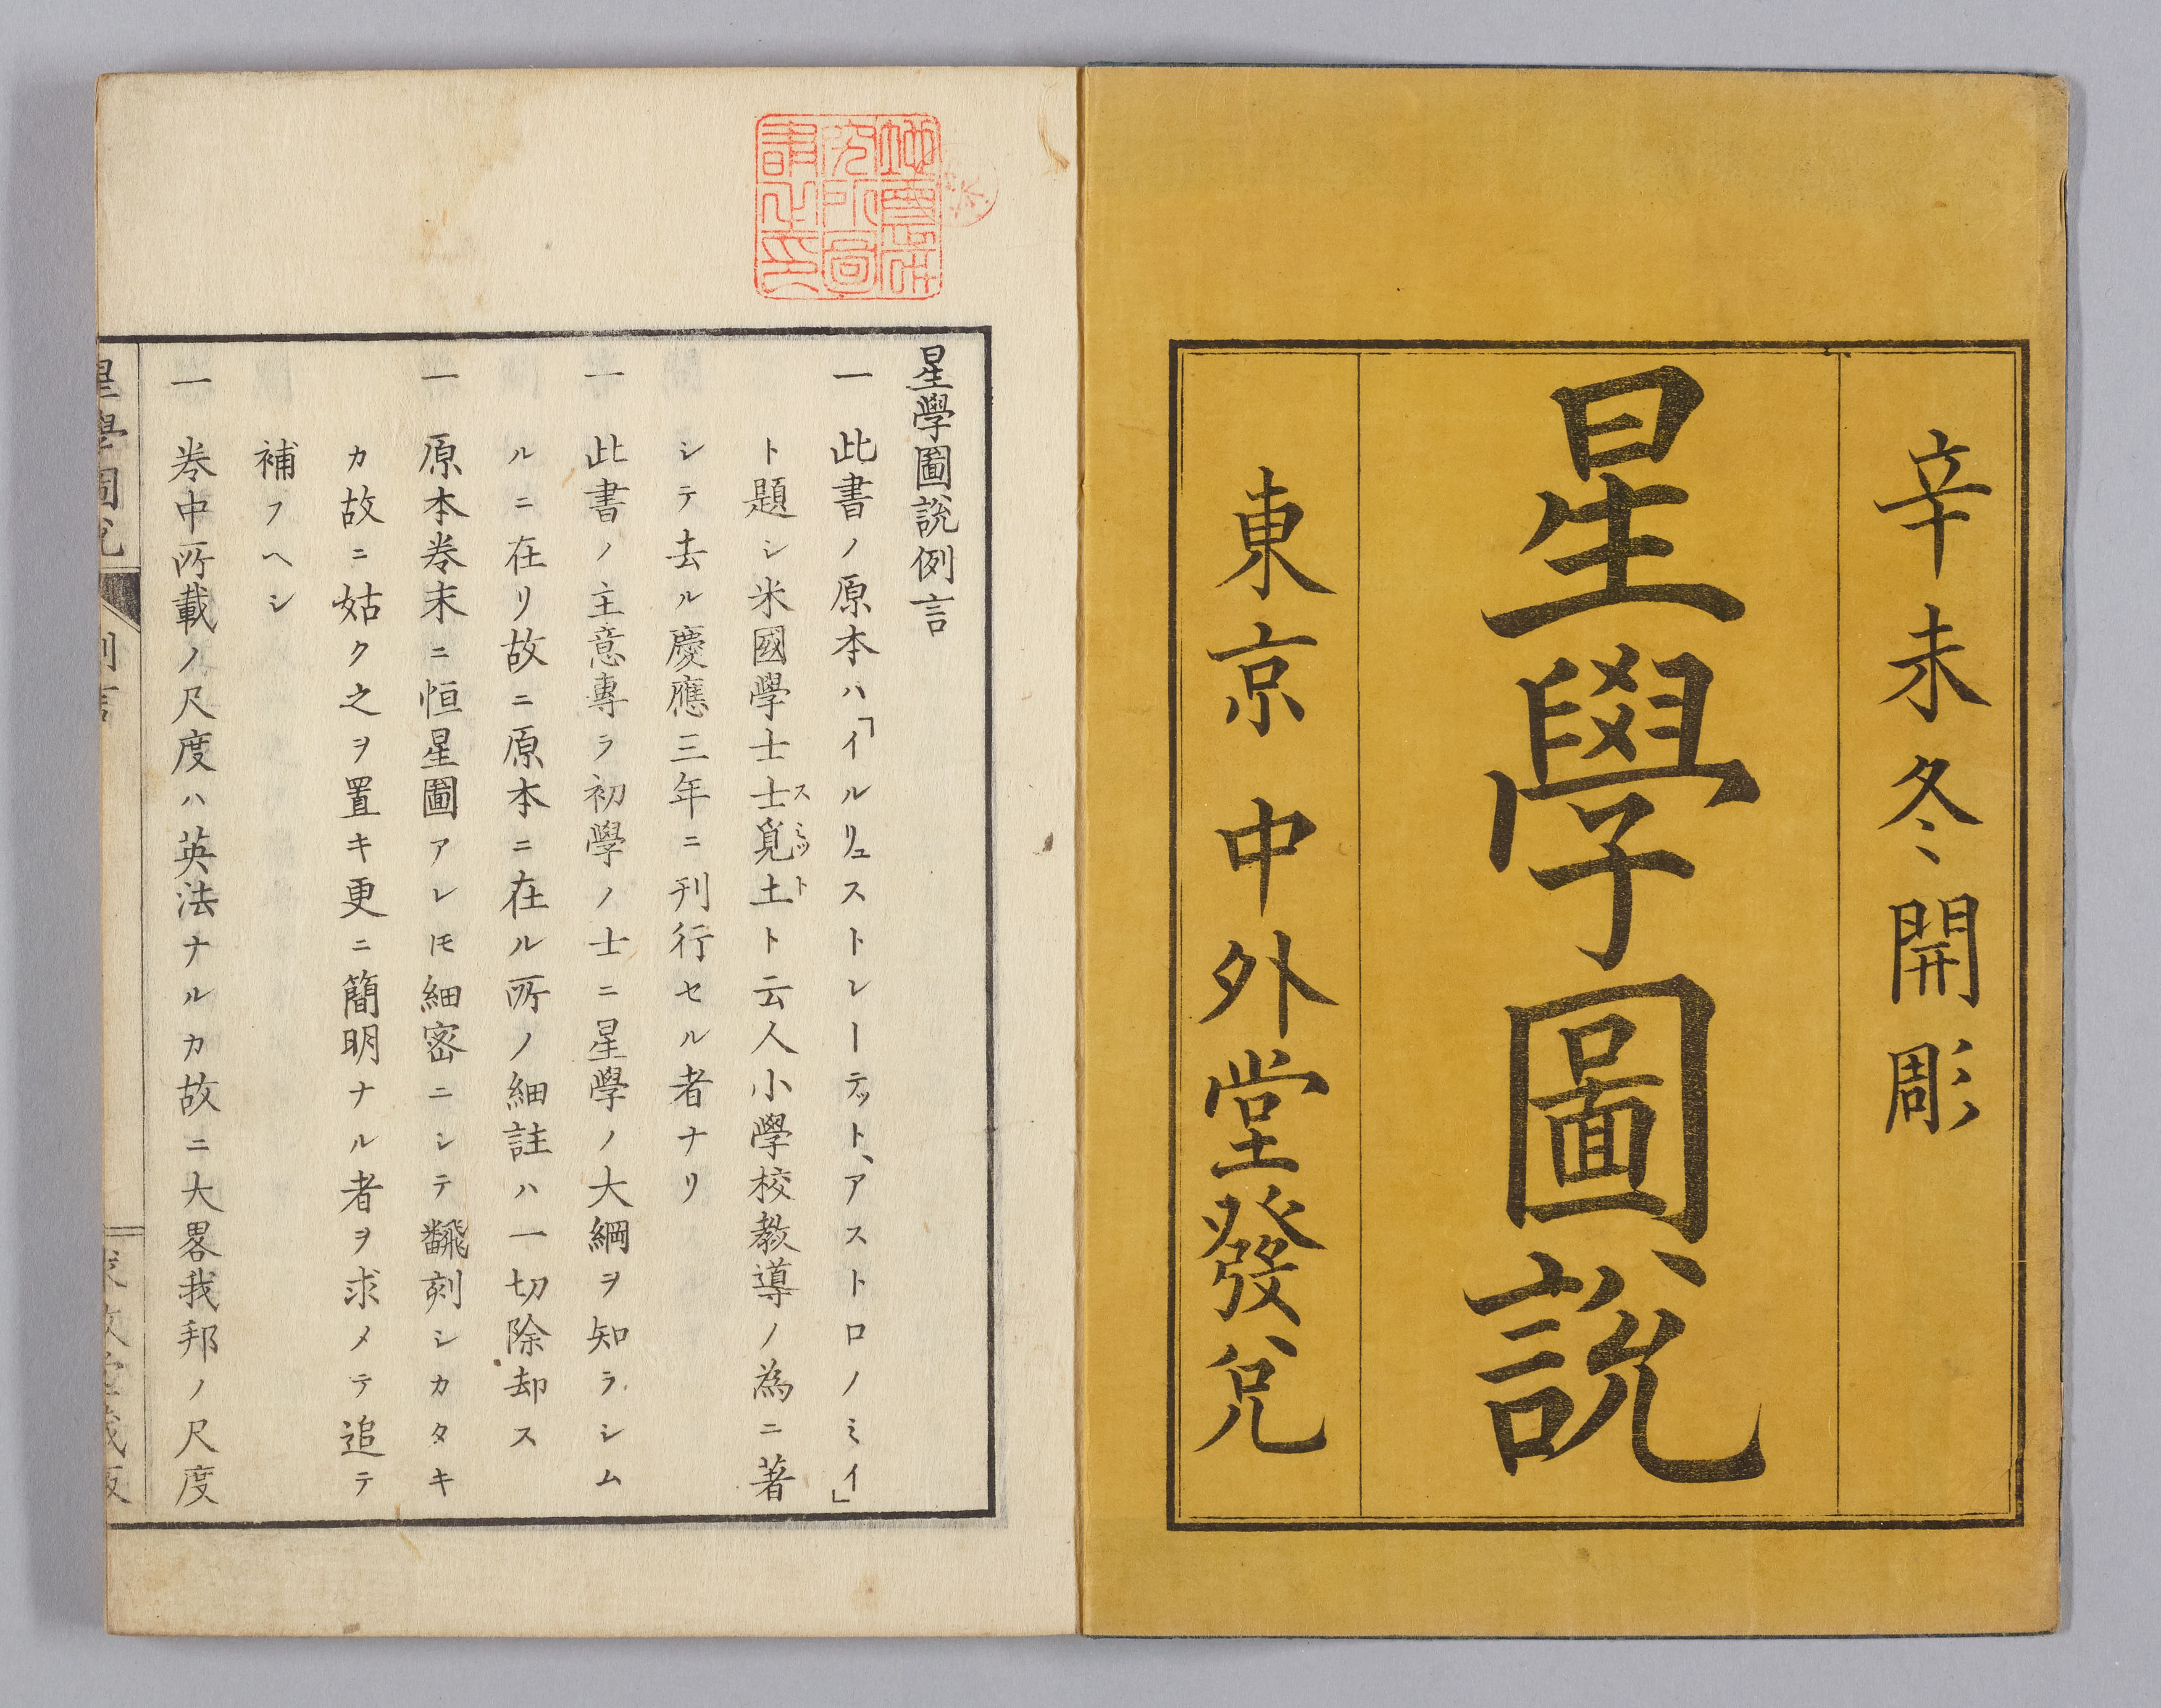 辛未冬開彫
星學圖說
東京 中外堂發兌
星學圖說例言
一 此書ノ原本ハ「イルリュストレーテット、アストロノミイ」
ト題シ米國學士士覓土ト云人小學校教導ノ為ニ著
スミット
シテ去ル慶應三年ニ刊行セル者ナリ
一 此書ノ主意專ラ初學ノ士ニ星學ノ大綱ヲ知ラシム
ルニ在リ故ニ原本ニ在ル所ノ細註ハ一切除却ス
一 原本卷末ニ恒星圖アレ𪜈細密ニシテ飜刻シカタキ
カ故ニ姑ク之ヲ置キ更ニ簡明ナル者ヲ求メテ追テ
補フヘシ
一 卷中所載ノ尺度ハ英法ナルカ故ニ大畧我邦ノ尺度
星學圖說
例言